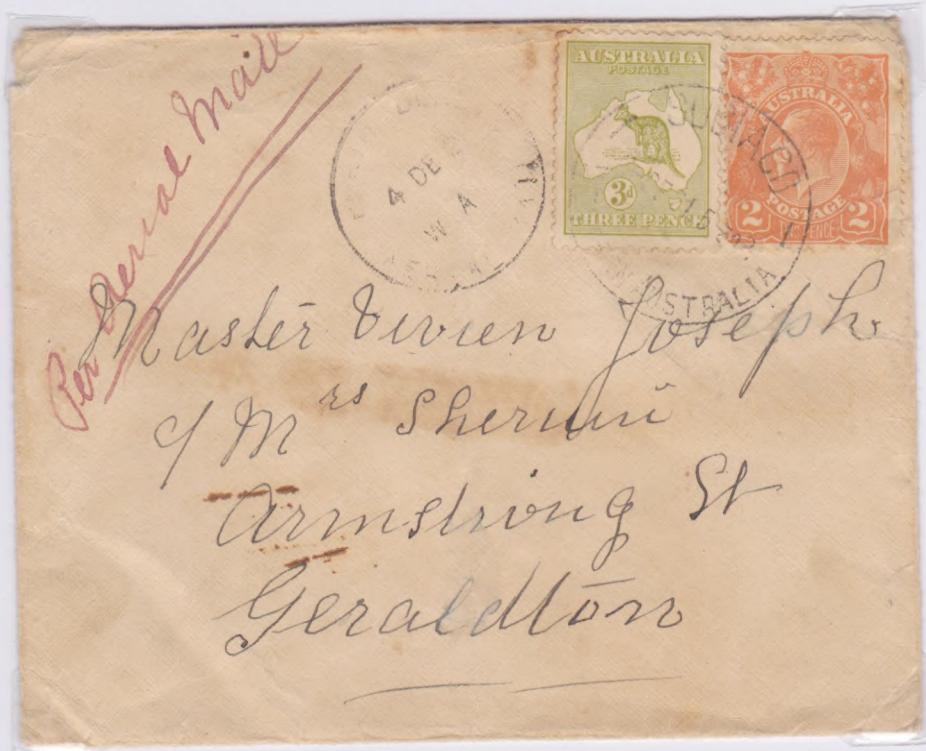 Per Aerial Mail
4 DE
W A
AERIAL
AUSTRALIA
POSTAGE
3d
THREE PENCE
AUSTRALIA
POSTAGE
2 2
PENCE
SUBIACO
AUSTRALIA
Master Vivien Joseph
c/ Mrs
Armstrong St
Geraldton